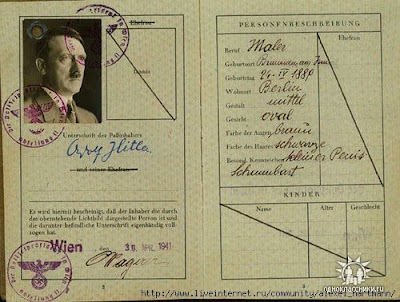 Ehefrau
Unterschrift des Paßinhabers
Adolf Hitler
und seiner Ehefrau
Es wird hiermit bescheinigt, daß der Inhaber die durch
das obenstehende Lichtbild dargestellte Person ist und
die darunter befindliche Unterschrift eigenhändig voll-
zogen hat.
Wien
1941
Wagner
PERSONENBESCHREIBUNG
Ehefrau
Beruf Maler
Geburtsort Braunau am Inn
Geburtstag 24-IV 1880
Wohnort Berlin
Gestalt mittl
Gesicht oval
Farbe der Augen braun
Farbe des Haares schwarze
Besond. Kennzeichen kleiner Penis
Schnurrbart
KINDER
Name Alter Geschlecht
одноклассники.ru
http://www.liveinternet.ru/community/alex_hartmann/